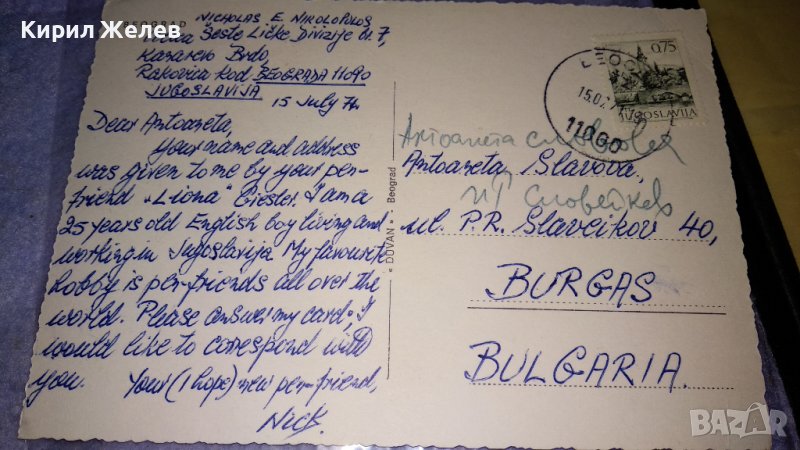 Кирил Желев
BEOGRAD
NICHOLAS E. NIKOLOPULOS
Šeste Ličke Divizije br. 7,
Rakovica kod BEOGRADA 11090
JUGOSLAVIJA
15 July 74
Dear Antoaneta,
Your name and address
was given to me by your pen-
friend "Liona" Giesler. I am a
25 years old English boy living and
working in Jugoslavija. My favourite
hobby is pen-friends all over the
world. Please answer my card; I
would like to correspond with
you.
Your (I hope) new pen-friend,
Nick.
"DUVAN" • Beograd
0.75
JUGOSLAVIJA
11000
Антоанета
Antoaneta Slavova,
ul. P.R. Slaveikov 40,
BURGAS
BULGARIA.
BAZAR
bg